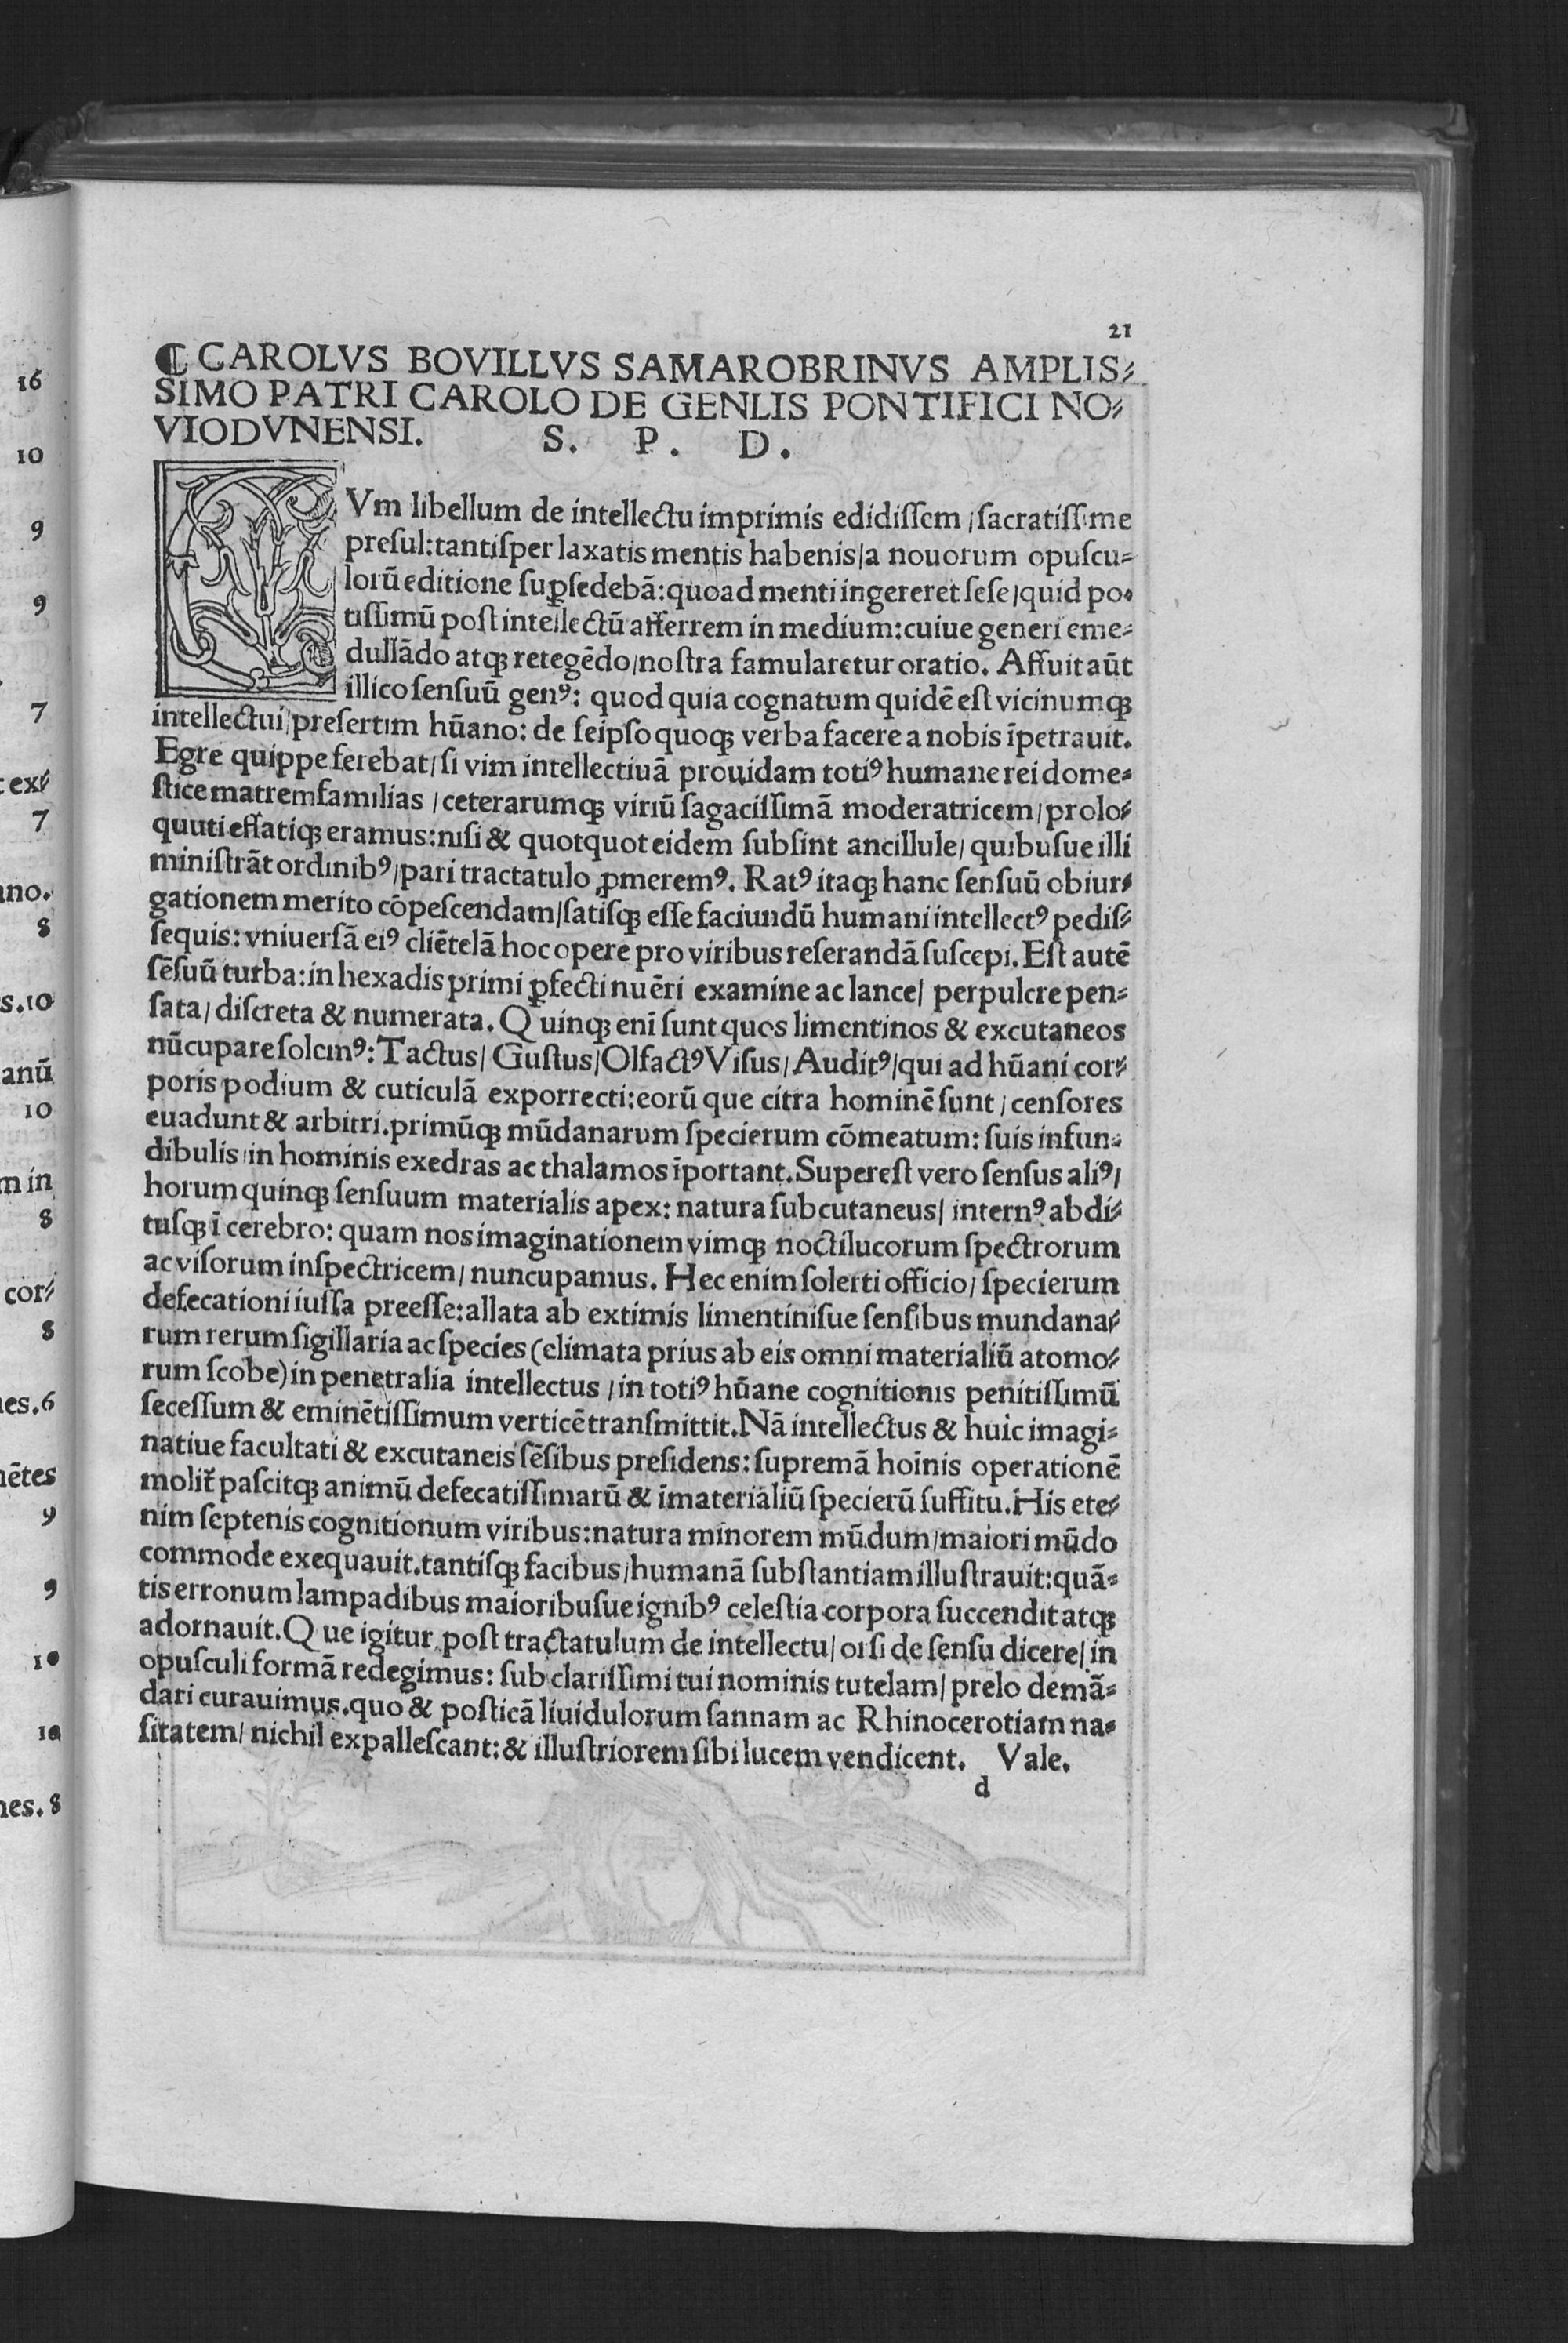 21
¶ CAROLVS BOVILLVS SAMAROBRINVS AMPLIS⸗
SIMO PATRI CAROLO DE GENLIS PONTIFICI NO⸗
VIODVNENSI. S. P. D.
CVm libellum de intellectu imprimis edidiſſem / ſacratiſſime
preſul: tantiſper laxatis mentis habenis / a nouorum opuſcu⸗
lorū editione ſuꝑſedebā: quoad menti ingereret ſeſe / quid po⸗
tiſſimū poſt intellectū afferrem in medium: cuiue generi eme⸗
dullādo atqꝫ retegēdo / noſtra famularetur oratio. Affuit aūt
illico ſenſuū genꝰ: quod quia cognatum quidē eſt vicinumqꝫ
intellectui / preſertim hūano: de ſeipſo quoqꝫ verba facere a nobis īpetrauit.
Egre quippe ferebat / ſi vim intellectiuā prouidam totiꝰ humane rei dome⸗
ſtice matremfamilias / ceterarumqꝫ viriū ſagaciſſimā moderatricem / prolo⸗
quuti effatiqꝫ eramus: niſi & quotquot eidem ſubſint ancillule / quibuſue illi
miniſtrāt ordinibꝰ / pari tractatulo ꝓmeremꝰ. Ratꝰ itaqꝫ hanc ſenſuū obiur⸗
gationem merito cōpeſcendam / ſatiſqꝫ eſſe faciundū humani intellectꝰ pediſ⸗
ſequis: vniuerſā eiꝰ cliētelā hoc opere pro viribus reſerandā ſuſcepi. Eſt autē
ſēſuū turba: in hexadis primi ꝑfecti nuēri examine ac lance / perpulcre pen⸗
ſata / diſcreta & numerata. Quinqꝫ enī ſunt quos limentinos & excutaneos
nūcupare ſolemꝰ: Tactus / Guſtus / Olfactꝰ Viſus / Auditꝰ / qui ad hūani cor⸗
poris podium & cuticulā exporrecti: eorū que citra hominē ſunt / cenſores
euadunt & arbitri. primūqꝫ mūdanarum ſpecierum cōmeatum: ſuis infun⸗
dibulis in hominis exedras ac thalamos īportant. Supereſt vero ſenſus aliꝰ /
horum quinqꝫ ſenſuum materialis apex: natura ſubcutaneus / internꝰ abdi⸗
tuſqꝫ ī cerebro: quam nos imaginationem vimqꝫ noctilucorum ſpectrorum
ac viſorum inſpectricem / nuncupamus. Hec enim ſolerti officio / ſpecierum
defecationi iuſſa preeſſe: allata ab extimis limentiniſue ſenſibus mundana⸗
rum rerum ſigillaria ac ſpecies (elimata prius ab eis omni materialiū atomo⸗
rum ſcobe) in penetralia intellectus / in totiꝰ hūane cognitionis penitiſſimū
ſeceſſum & eminētiſſimum verticē tranſmittit. Nā intellectus & huic imagi⸗
natiue facultati & excutaneis ſēſibus preſidens: ſupremā hoīnis operationē
molit̄ paſcitqꝫ animū defecatiſſimarū & īmaterialiū ſpecierū ſuffitu. His ete⸗
nim ſeptenis cognitionum viribus: natura minorem mūdum / maiori mūdo
commode exequauit. tantiſqꝫ facibus / humanā ſubſtantiam illuſtrauit: quā⸗
tis erronum lampadibus maioribuſue ignibꝰ celeſtia corpora ſuccendit atqꝫ
adornauit. Que igitur poſt tractatulum de intellectu / orſi de ſenſu dicere / in
opuſculi formā redegimus: ſub clariſſimi tui nominis tutelam / prelo demā⸗
dari curauimus. quo & poſticā liuidulorum ſannam ac Rhinocerotiam na⸗
ſitatem / nichil expalleſcant: & illuſtriorem ſibi lucem vendicent. Vale.
d
16
10
9
9
7
ex⸗
7
ano.
8
s. 10
anū
10
m in
8
cor⸗
8
nes. 6
nētes
9
9
10
10
nes. 8